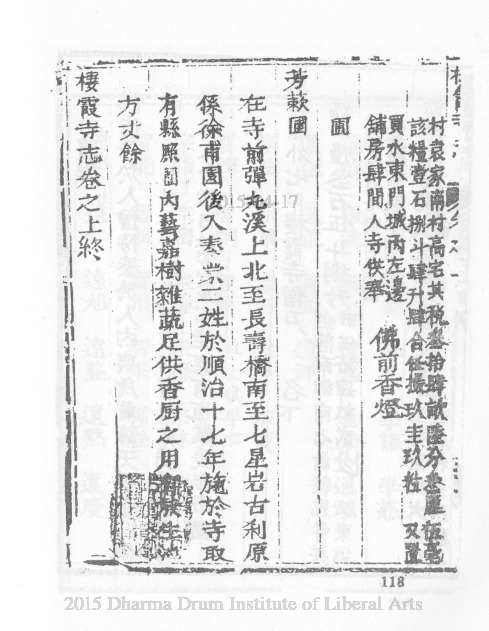 村袁家南村高石其稅叁拾肆畝陸分叁厘伍毫
該糧壹石捌斗肆升肆合伍撮玖圭玖粒 又置
買水東門城內左邊
舖房肆間入寺供奉 佛前香燈
園
芳蔌園
在寺前彈丸溪上北至長壽橋南至七星岩古利原
係徐甫園後入秦 二姓於順治十七年施於寺取
有縣照 內藝嘉樹雜蔬足供香厨之用 放生池
方丈餘
棲霞寺志卷之上終
118
2015-04-17
2015 Dharma Drum Institute of Liberal Arts